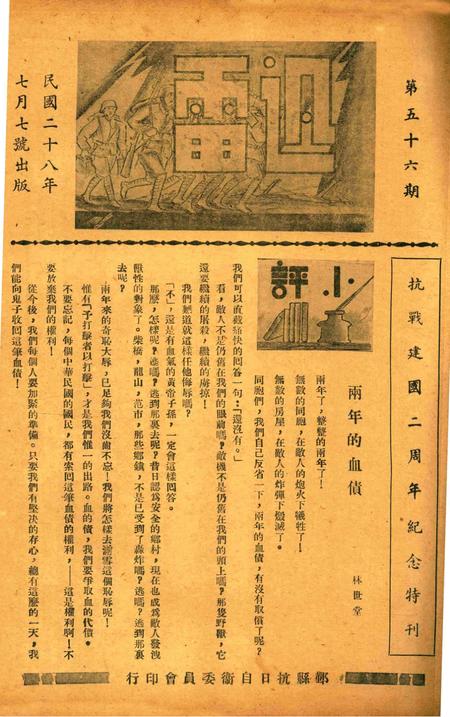 第五十六期
民國二十八年
七月七號出版
抗戰建國二周年紀念特刊
小評
兩年的血債
林世堂
兩年了，整整的兩年了！
無數的同胞，在敵人的炮火下犧牲了！
無數的房屋，在敵人的炸彈下燬滅了。
同胞們，我們自己反省一下，兩年的血債，有沒有取償了呢？
我們可以直截痛快的回答一句：「還沒有。」
看，敵人不是仍舊在我們的眼前嗎？敵機不是仍舊在我們的頭上嗎？那隻野獸，它
還要繼續的屠殺，繼續的虜掠！
我們難道就這樣任他侮辱嗎？
「不」，還是有血氣的黃帝子孫，一定會這樣回答。
那麼，怎樣呢？逃嗎？逃到那裏去呢？昔日認為安全的鄉村，現在也成為敵人發洩
獸性的對象了。柴橋，龍山，范市，那些鄉鎮，不是已受到了轟炸嗎？逃嗎？逃到那裏
去呢？
兩年來的奇恥大辱，已足夠我們沒齒不忘！我們將怎樣去湔雪這個恥辱呢！
惟有「予打擊者以打擊」，才是我們惟一的出路。血的債，我們要爭取血的代價。
不要忘記，每個中華民國的國民，都有索回這筆血債的權利，——這是權利啊！不
要放棄我們的權利！
從今後，我們每個人要加緊的準備。只要我們有堅決的存心，總有這麼的一天，我
們能向鬼子收回這筆血債！
鄞縣抗日自衛委員會印行